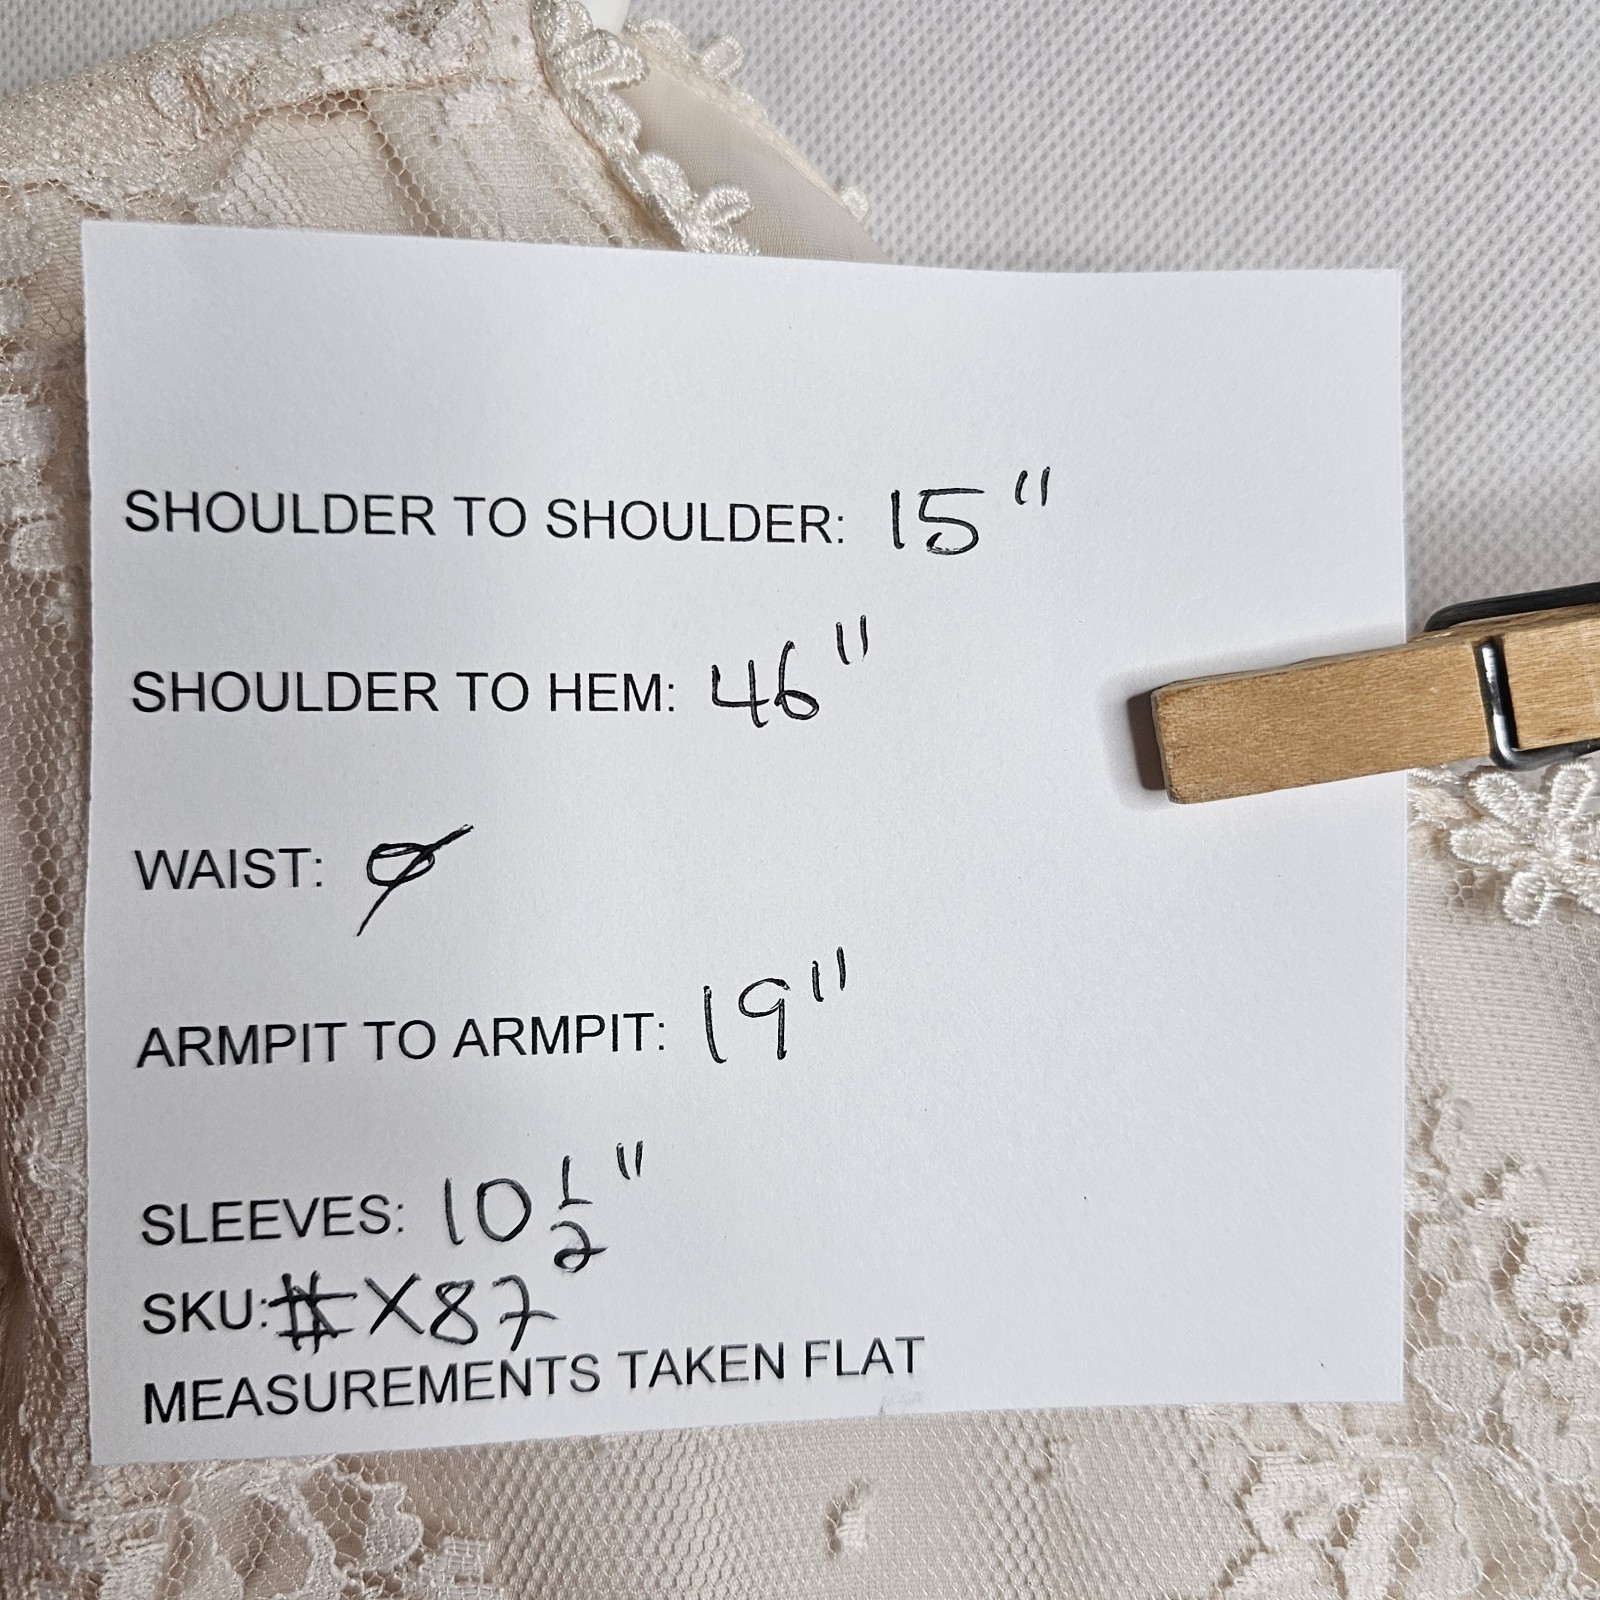 SHOULDER TO SHOULDER: 15"
SHOULDER TO HEM: 46"
WAIST: Ø
ARMPIT TO ARMPIT: 19"
SLEEVES: 10 1/2"
SKU:# X87
MEASUREMENTS TAKEN FLAT